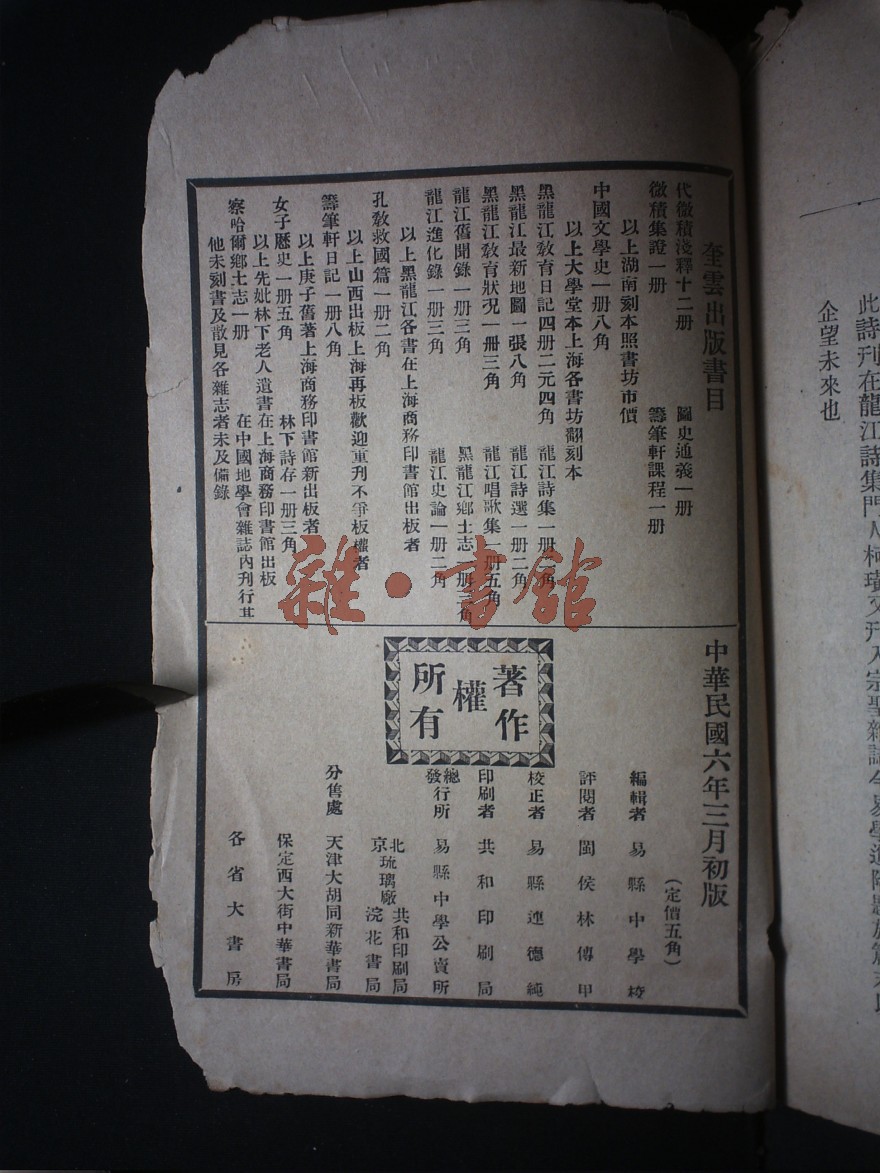 奎雲出版書目
代微積淺釋十二册　圖史通義一册
微積集證一册　籌筆軒課程一册
以上湖南刻本照書坊市價
中國文學史一册八角
以上大學堂本上海各書坊翻刻本
黑龍江教育日記四册二元四角　龍江詩集一册二角
黑龍江最新地圖一張八角　龍江詩選一册二角
黑龍江教育狀况一册三角　龍江唱歌集一册五角
龍江舊聞錄一册三角　黑龍江鄉土志一册三角
龍江進化錄一册三角　龍江史論一册二角
以上黑龍江各書在上海商務印書館出板者
孔教救國篇一册二角
以上山西出板上海再板歡迎重刊不爭板權者
籌筆軒日記一册八角
以上庚子舊著上海商務印書館新出板者
女子歷史一册五角　林下詩存一册三角
以上先妣林下老人遺書在上海商務印書館出板
察哈爾鄉土志一册　在中國地學會雜誌內刊行其
他未刻書及散見各雜志者未及備錄
中華民國六年三月初版
（定價五角）
編輯者　易縣中學校
評閱者　閩侯林傳甲
校正者　易縣連德純
印刷者　共和印刷局
總發行所　易縣中學公賣所
北京琉璃廠　共和印刷局　浣花書局
分售處　天津大胡同新華書局
保定西大街中華書局
各省大書房
著作權所有
雜·書館
此詩刊在龍江詩集門人柯璜又刊入宗聖雜誌今易學進
企望未來也